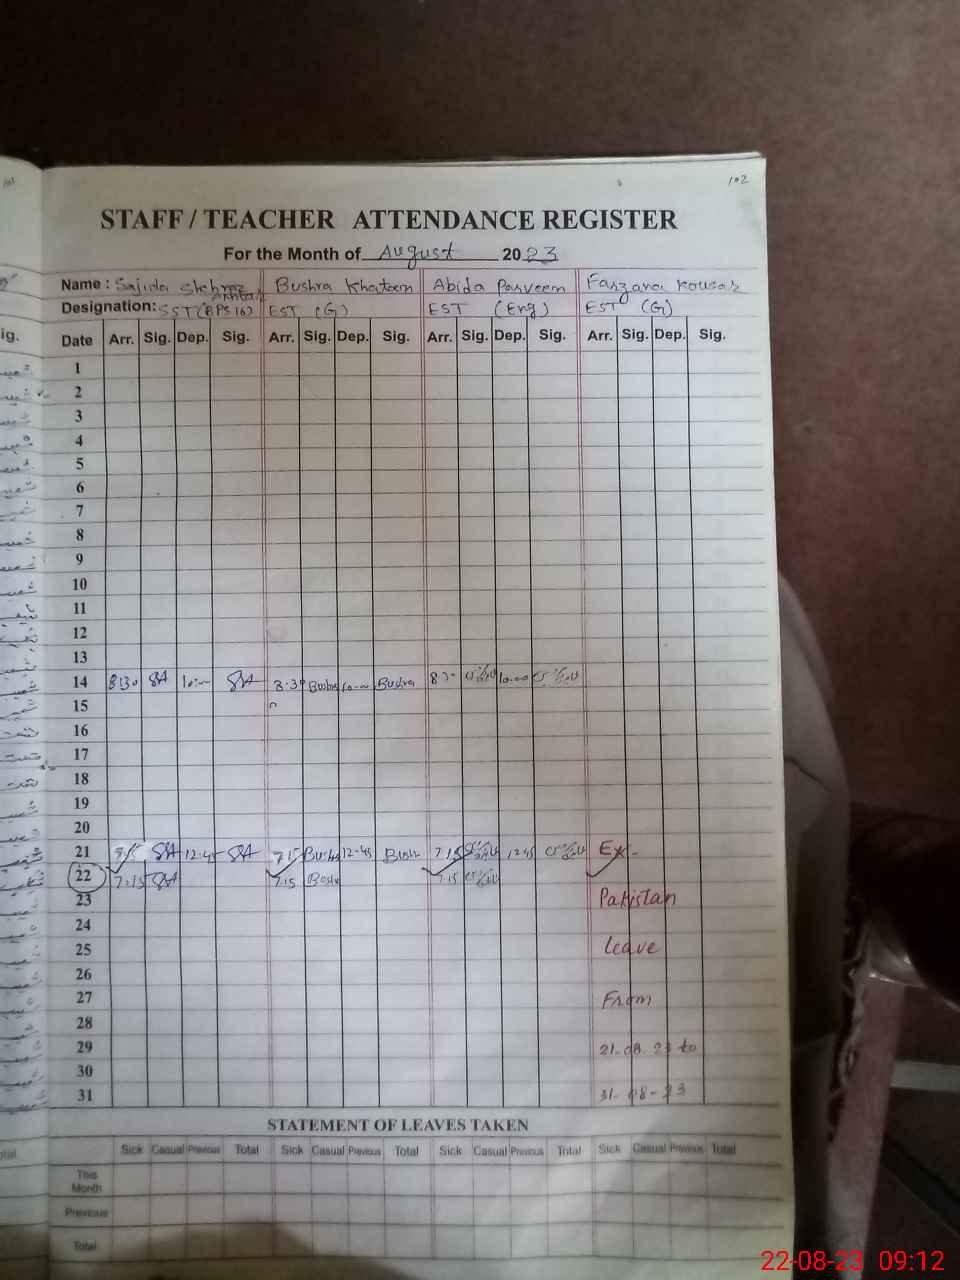 102
STAFF / TEACHER ATTENDANCE REGISTER
For the Month of August 2023
Name : Sajida Shehnaz Akhtar Bushra Khatoon Abida Parveen Farzana Kousar
Designation: SST (BPS 16) EST (G) EST (Eng) EST (G)
Date Arr. Sig. Dep. Sig. Arr. Sig. Dep. Sig. Arr. Sig. Dep. Sig. Arr. Sig. Dep. Sig.
1
2
3
4
5
6
7
8
9
10
11
12
13
14 8:30 SA 10:00 SA 8:30 Bushra 10:00 Bushra 8:30 10:00
15
16
17
18
19
20
21 7:15 SA 12-45 SA 7:15 Bushra 12-45 Bushra 7:15 12:45 Ex-
22 7:15 SA 7:15 Bushra 7:15
23 Pakistan
24
25 leave
26
27 From
28
29 21-08-23 to
30
31 31-08-23
STATEMENT OF LEAVES TAKEN
Sick Casual Previous Total Sick Casual Previous Total Sick Casual Previous Total Sick Casual Previous Total
This
Month
Previous
Total
22-08-23 09:12